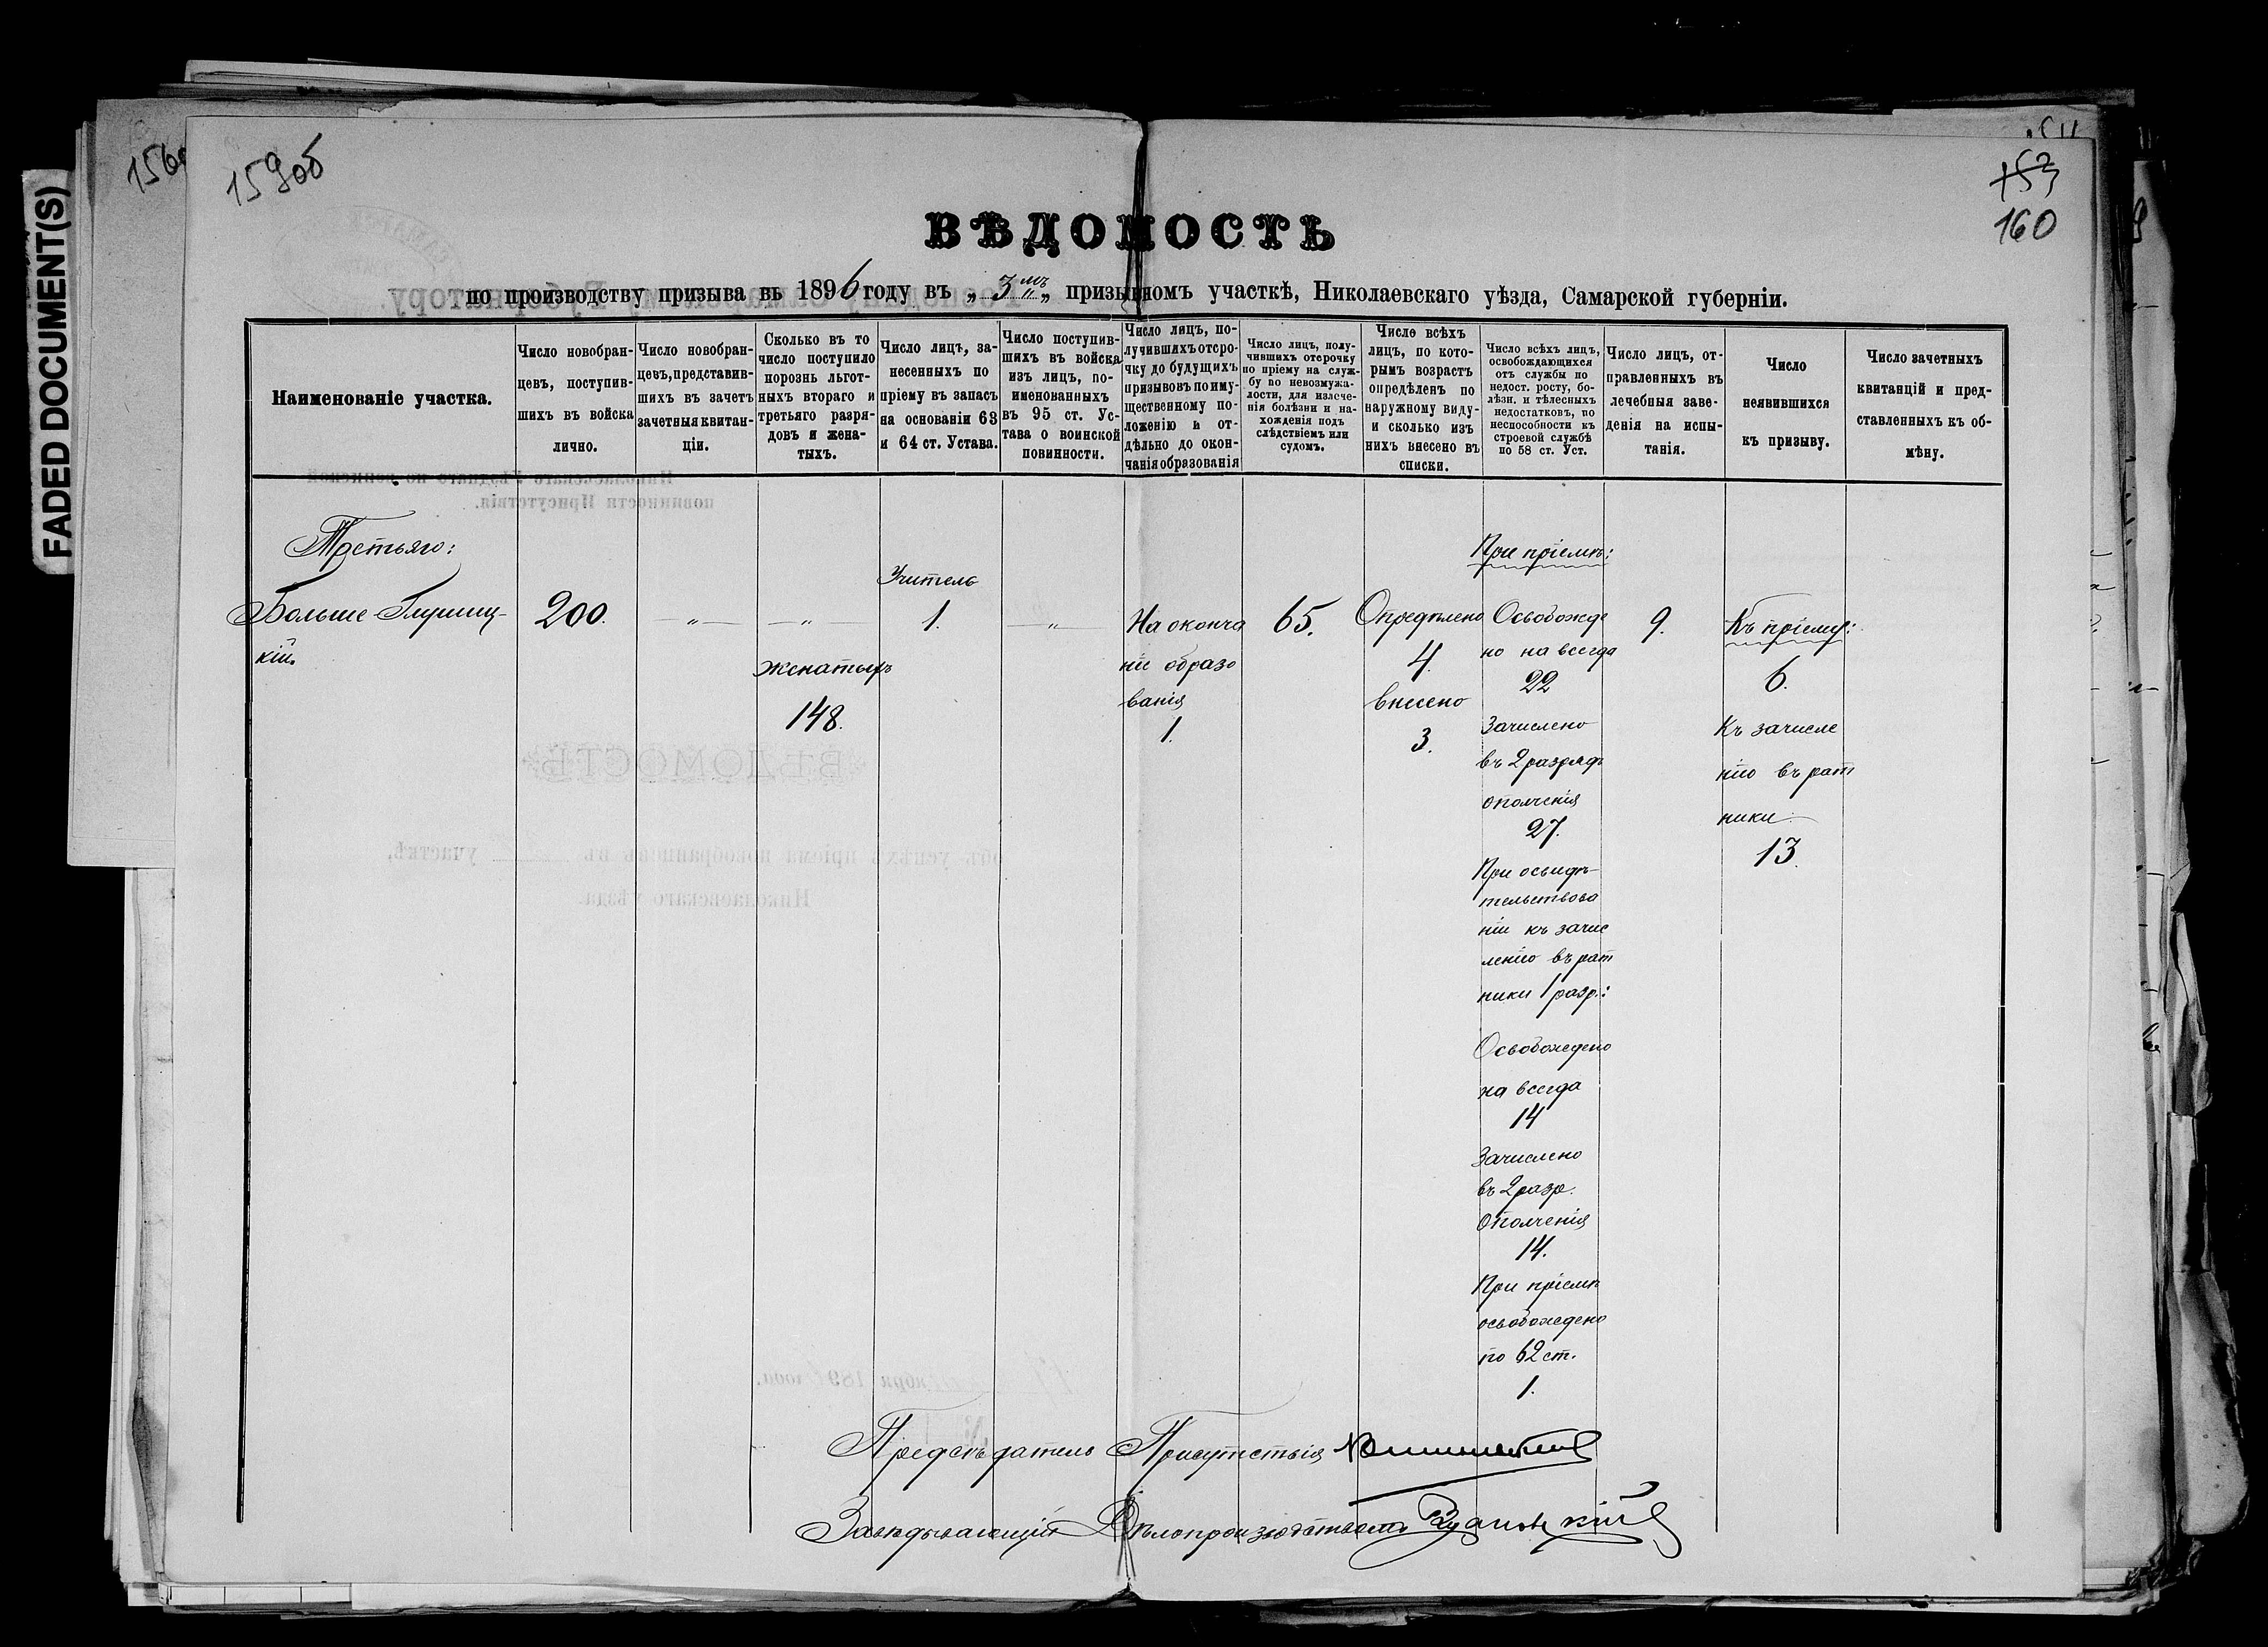 FADED DOCUMENT(S)
159об
153
160
ВѢДОМОСТЬ
по производству призыва въ 1896 году въ „ 3мъ „ призывномъ участкѣ, Николаевскаго уѣзда, Самарской губерніи.
Наименованіе участка.
Число новобран-
цевъ, поступив-
шихъ въ войска
лично.
Число новобран-
цевъ, представив-
шихъ въ зачетъ
зачетныя квитан-
ціи.
Сколько въ то
число поступило
порознь льгот-
ныхъ втораго и
третьяго разря-
довъ и жена-
тыхъ.
Число лицъ, за-
несенныхъ по
пріему въ запасъ
на основаніи 63
и 64 ст. Устава.
Число поступив-
шихъ въ войска
изъ лицъ, по-
именованныхъ
въ 95 ст. Ус-
тава о воинской
повинности.
Число лицъ, по-
лучившихъ отсро-
чку до будущихъ
призывовъ по иму-
щественному по-
ложенію и от-
дѣльно до окон-
чанія образованія
Число лицъ, полу-
чившихъ отсрочку
по пріему на служ-
бу по невозмужа-
лости, для излече-
нія болѣзни и на-
хожденія подъ
слѣдствіемъ или
судомъ.
Число всѣхъ
лицъ, по кото-
рымъ возрастъ
опредѣленъ по
наружному виду-
и сколько изъ
нихъ внесено въ
списки.
Число всѣхъ лицъ,
освобождающихся
отъ службы по
недост. росту, бо-
лѣзн. и тѣлесныхъ
недостатковъ, по
неспособности къ
строевой службѣ
по 58 ст. Уст.
Число лицъ, от-
правленныхъ въ
лечебныя заве-
денія на испы-
танія.
Число
неявившихся
къ призыву.
Число зачетныхъ
квитанцій и пред-
ставленныхъ къ об-
мѣну.
Третьяго:
Больше-Глушиц-
кій.
200.
— „ —
— „ —
женатыхъ
148.
Учитель
1.
— „ —
На оконча
ніе образо
ванія
1.
65.
Опредѣлено
4.
внесено
3.
При пріемѣ:
Освобожде
но на всегда
22
Зачислено
въ 2 разрядъ
ополченія
27.
При освидѣ-
тельствова
ніи къ зачис
ленію въ рат
ники 1 разр.:
Освобождено
на всегда
14
Зачислено
въ 2 разр.
Ополченія
14.
При пріемѣ
освобождено
по 62 ст.
1.
9.
Къ пріему:
6.
Къ зачисле
нію въ рат
ники
13.
Предсѣдатель Присутствія
Завѣдывающій Дѣлопроизводствомъ